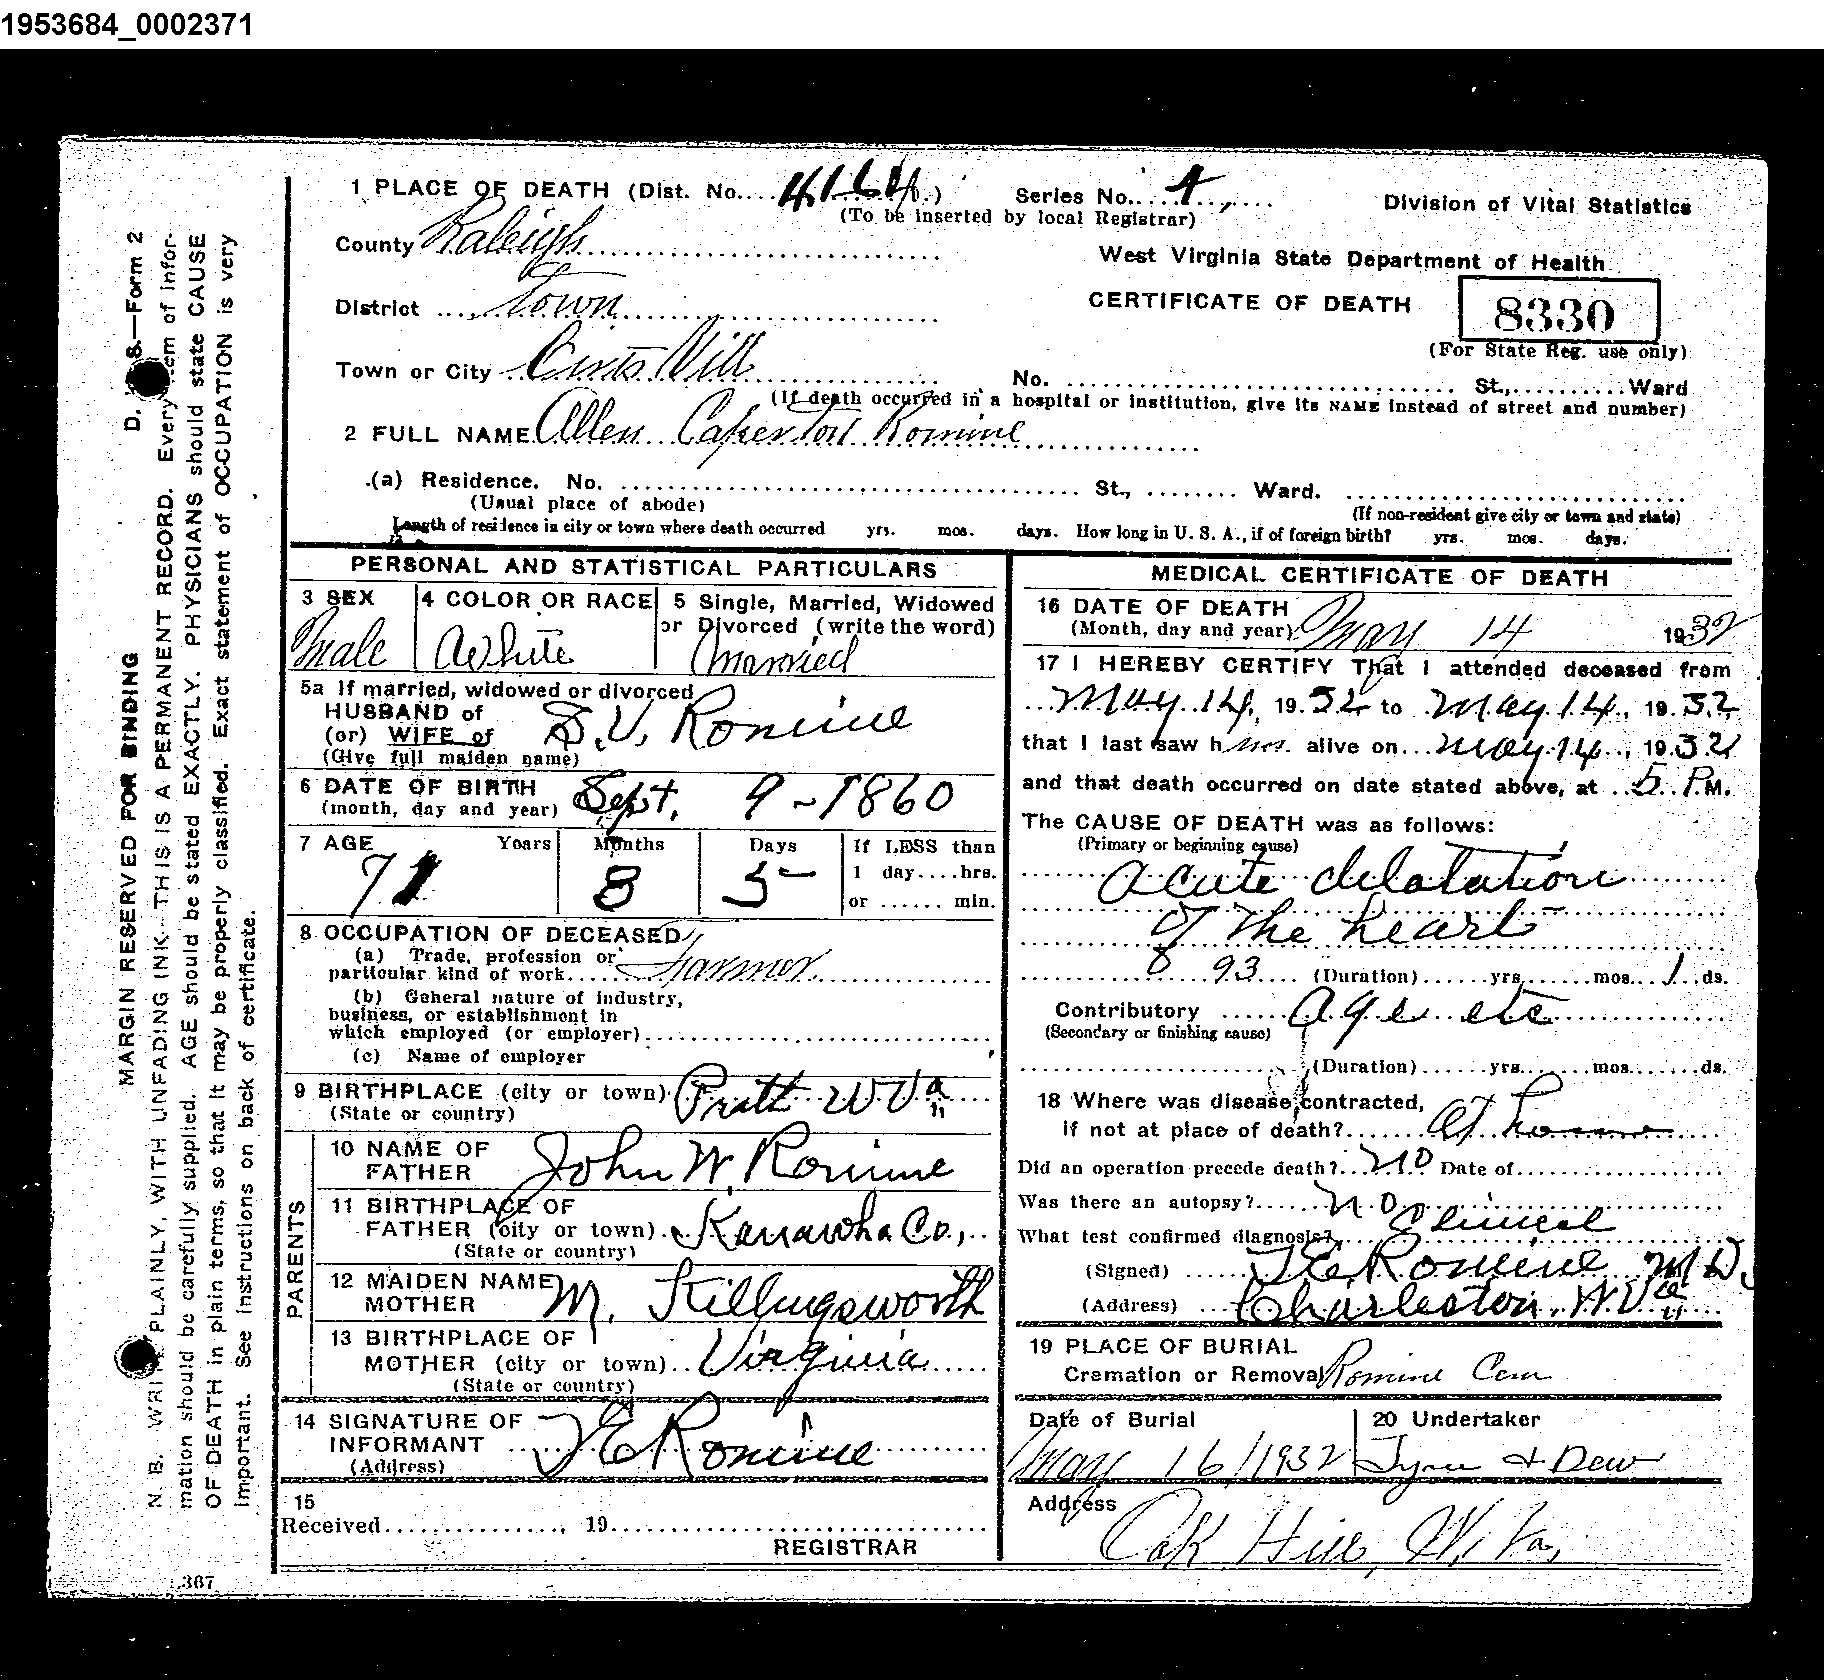 1953684_0002371
1 PLACE OF DEATH (Dist. No. 4164)
Series No. 4
(To be inserted by local Registrar)
Division of Vital Statistics
County Raleigh
West Virginia State Department of Health
District Town
CERTIFICATE OF DEATH
8330
(For State Reg. use only)
Town or City
No. St., Ward
(If death occurred in a hospital or institution, give its NAME instead of street and number)
2 FULL NAME Allen Caperton Romine
(a) Residence. No. St., Ward.
(Usual place of abode)
(If non-resident give city or town and state)
Length of residence in city or town where death occurred yrs. mos. days. How long in U. S. A., if of foreign birth? yrs. mos. days.
PERSONAL AND STATISTICAL PARTICULARS
3 SEX
Male
4 COLOR OR RACE
White
5 Single, Married, Widowed
or Divorced (write the word)
Married
5a If married, widowed or divorced
HUSBAND of
(or) WIFE of
(Give full maiden name)
S.V. Romine
6 DATE OF BIRTH
(month, day and year)
Sept. 9 - 1860
7 AGE Years Months Days
71 8 5
If LESS than
1 day....hrs.
or ...... min.
8 OCCUPATION OF DECEASED
(a) Trade, profession or
particular kind of work.... Farmer
(b) General nature of industry,
business, or establishment in
which employed (or employer)
(c) Name of employer
9 BIRTHPLACE (city or town) Pratt W Va
(State or country)
PARENTS
10 NAME OF
FATHER
John W. Romine
11 BIRTHPLACE OF
FATHER (city or town) Kanawha Co.,
(State or country)
12 MAIDEN NAME
MOTHER
M. Killingsworth
13 BIRTHPLACE OF
MOTHER (city or town) Virginia
(State or country)
14 SIGNATURE OF
INFORMANT
(Address)
Romine
15
Received ........, 19....
REGISTRAR
MEDICAL CERTIFICATE OF DEATH
16 DATE OF DEATH
(Month, day and year) May 14 1932
17 I HEREBY CERTIFY That I attended deceased from
May 14, 1932 to May 14, 1932
that I last saw him alive on May 14, 1932
and that death occurred on date stated above, at 5 P.M.
The CAUSE OF DEATH was as follows:
(Primary or beginning cause)
acute dilatation
of the heart
93 (Duration) yrs. mos. 1 ds.
Contributory age etc
(Secondary or finishing cause)
(Duration) yrs. mos. ds.
18 Where was disease contracted,
if not at place of death? At home
Did an operation precede death? no Date of
Was there an autopsy? no
What test confirmed diagnosis? Clinical
(Signed) Romine MD.
(Address) Charleston, W Va
19 PLACE OF BURIAL
Cremation or Removal Romine Cem
Date of Burial
May 16/1932
20 Undertaker
Tyree & Dew
Address
Oak Hill, W. Va.
MARGIN RESERVED FOR BINDING
D. S.—Form 2
N. B. WRITE PLAINLY, WITH UNFADING INK—THIS IS A PERMANENT RECORD. Every item of infor-
mation should be carefully supplied. AGE should be stated EXACTLY. PHYSICIANS should state CAUSE
OF DEATH in plain terms, so that it may be properly classified. Exact statement of OCCUPATION is very
important. See instructions on back of certificate.
367